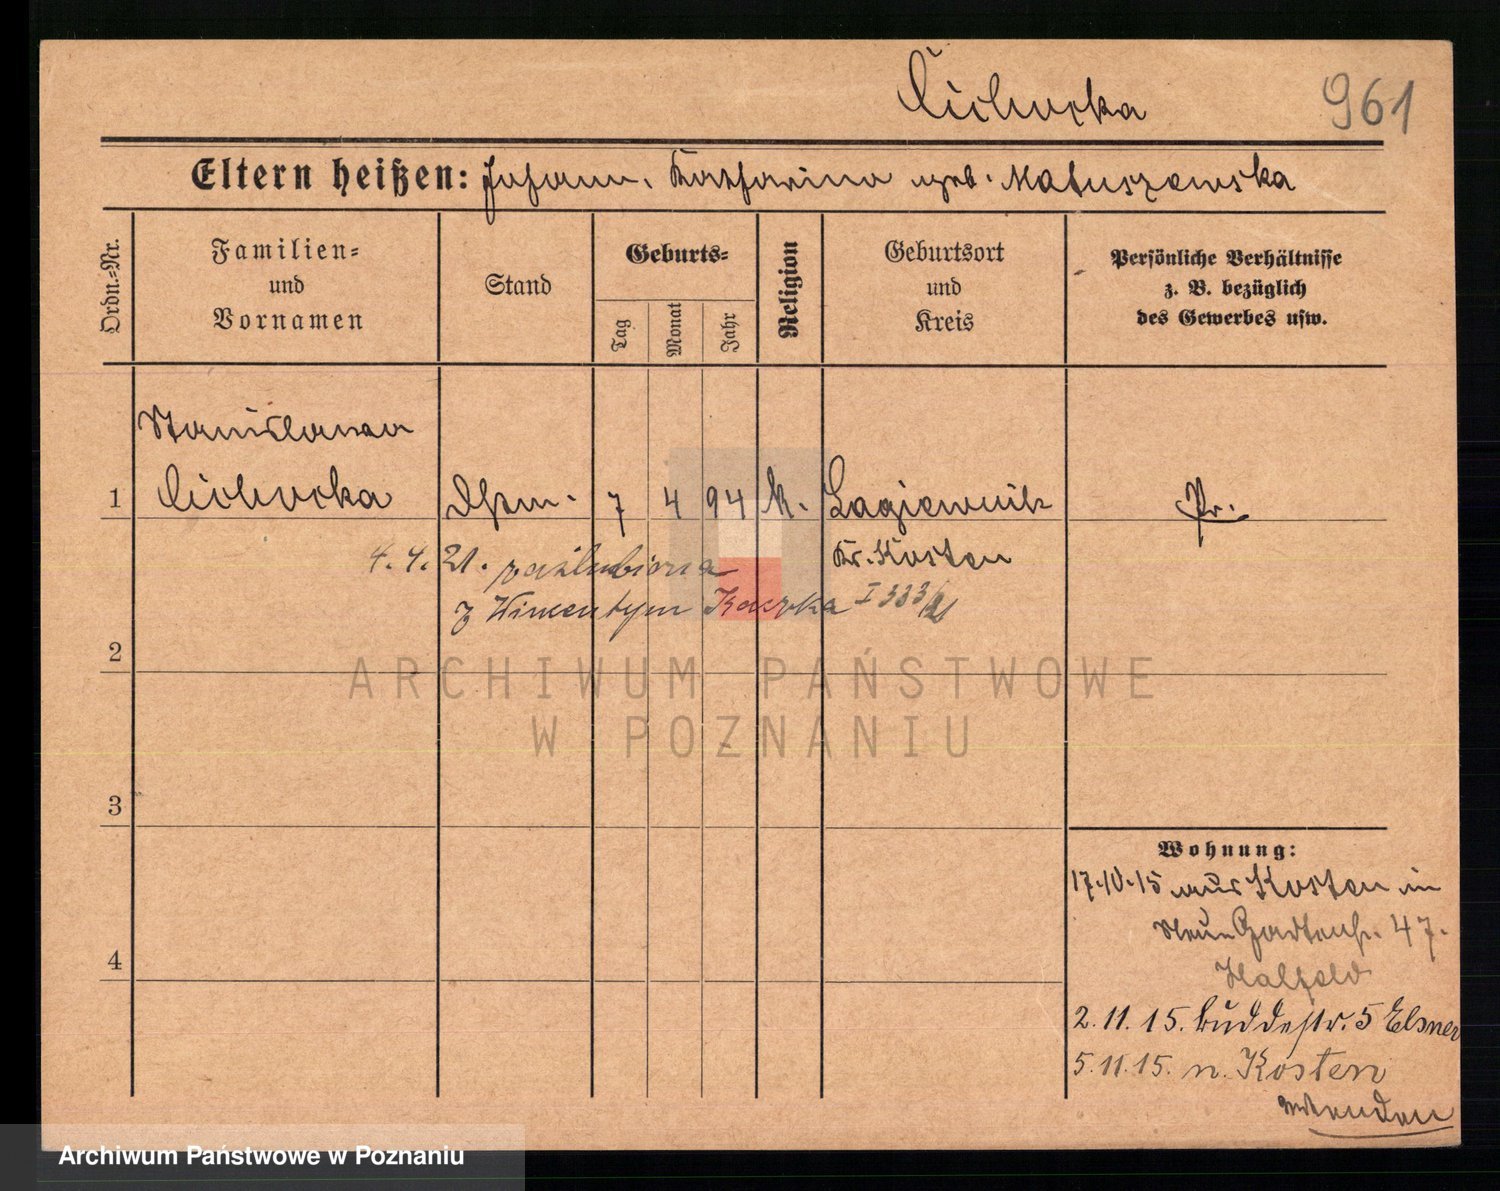 Cichocka 961
Eltern heißen: Johann, Katharina geb. Matuszewska
Ordn.-Nr.
Familien-
und
Vornamen
Stand
Geburts-
Tag
Monat
Jahr
Religion
Geburtsort
und
Kreis
Persönliche Verhältnisse
z. B. bezüglich
des Gewerbes usw.
Stanislawa
1 Cichocka 7 4 94 k. Lagiewnik Pr.
Kr. Kosten
4. 4. 21. zaślubiona
z Wincentym I 333/21
2
3
4
Wohnung:
17.10.15 aus Kosten in
Neue Gartenstr. 47.
2.11.15. Buddestr. 5 Elsner
5.11.15. n. Kosten
wenden
ARCHIWUM PAŃSTWOWE
W POZNANIU
Archiwum Państwowe w Poznaniu